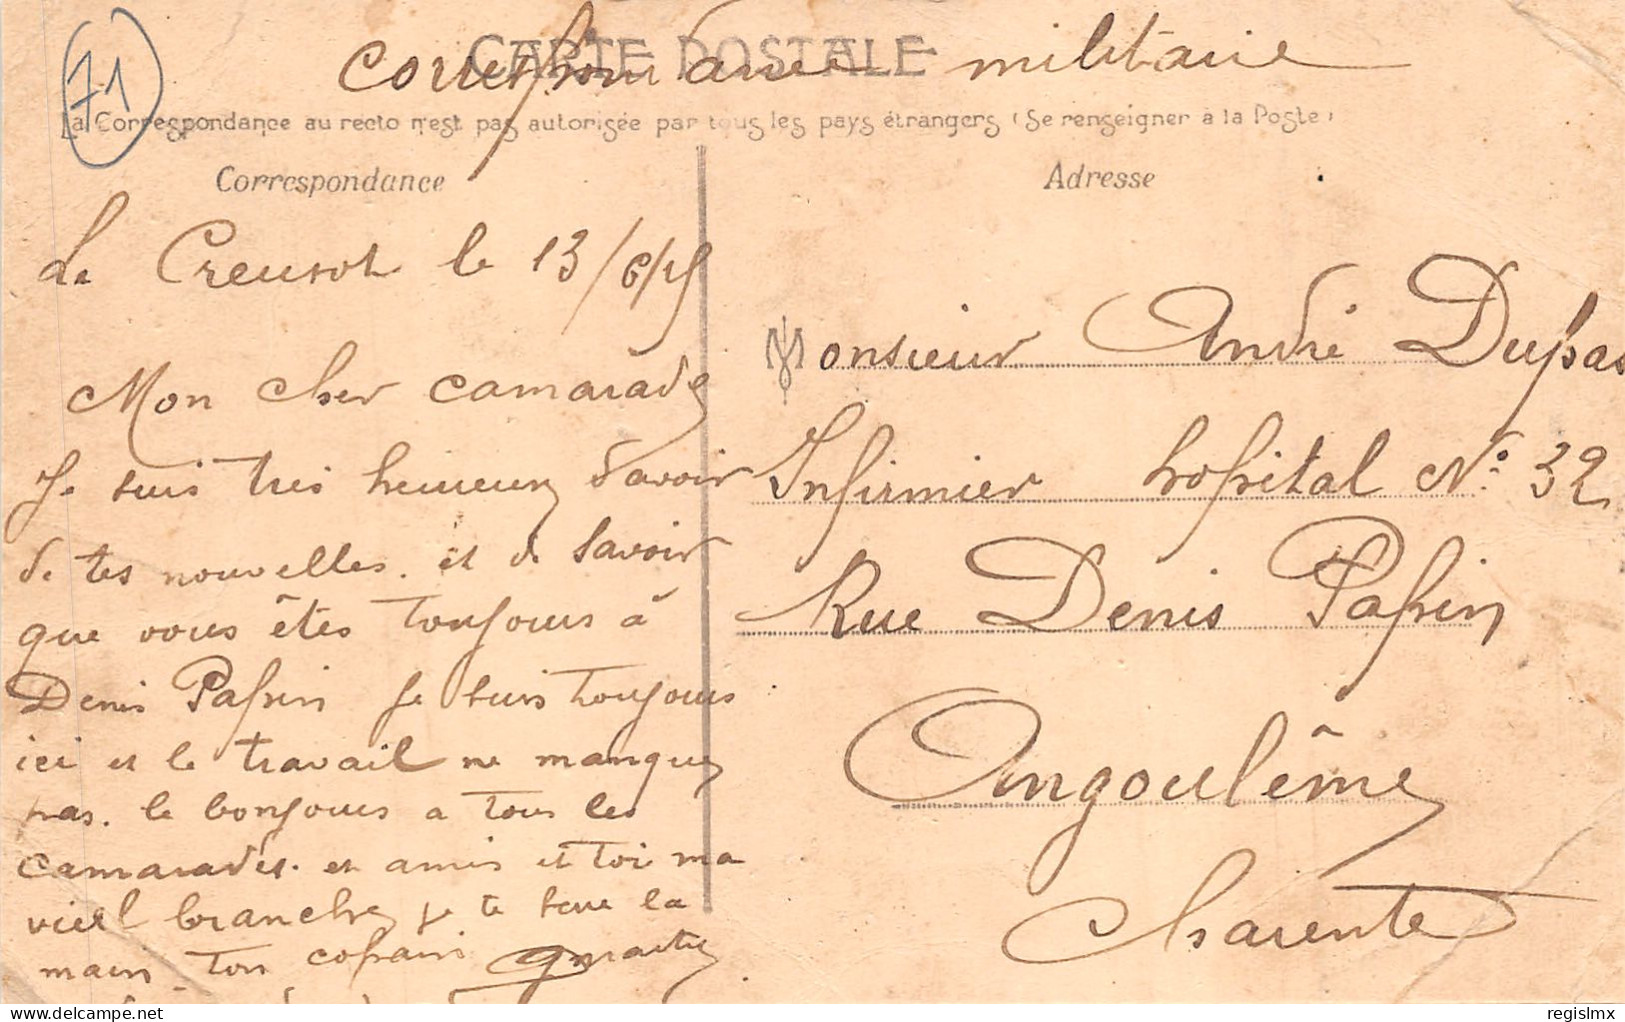 71
CARTE POSTALE
Correspondance militaire
La Correspondance au recto n'est pas autorisée par tous les pays étrangers (Se renseigner à la Poste)
Correspondance
Le Creusot le 13/6/15
Mon cher camarade
Je suis très heureux d'avoir
de tes nouvelles. et de savoir
que vous êtes toujours à
Denis Papin Je suis toujours
ici et le travail ne manque
pas. le bonjours a tous les
camarades. et amis et toi ma
vieil branche je te serre la
main ton copain
Adresse
Monsieur André Dupas
Infirmier hopital N° 32
Rue Denis Papin
Angoulême
Charente
delcampe.net
regislmx